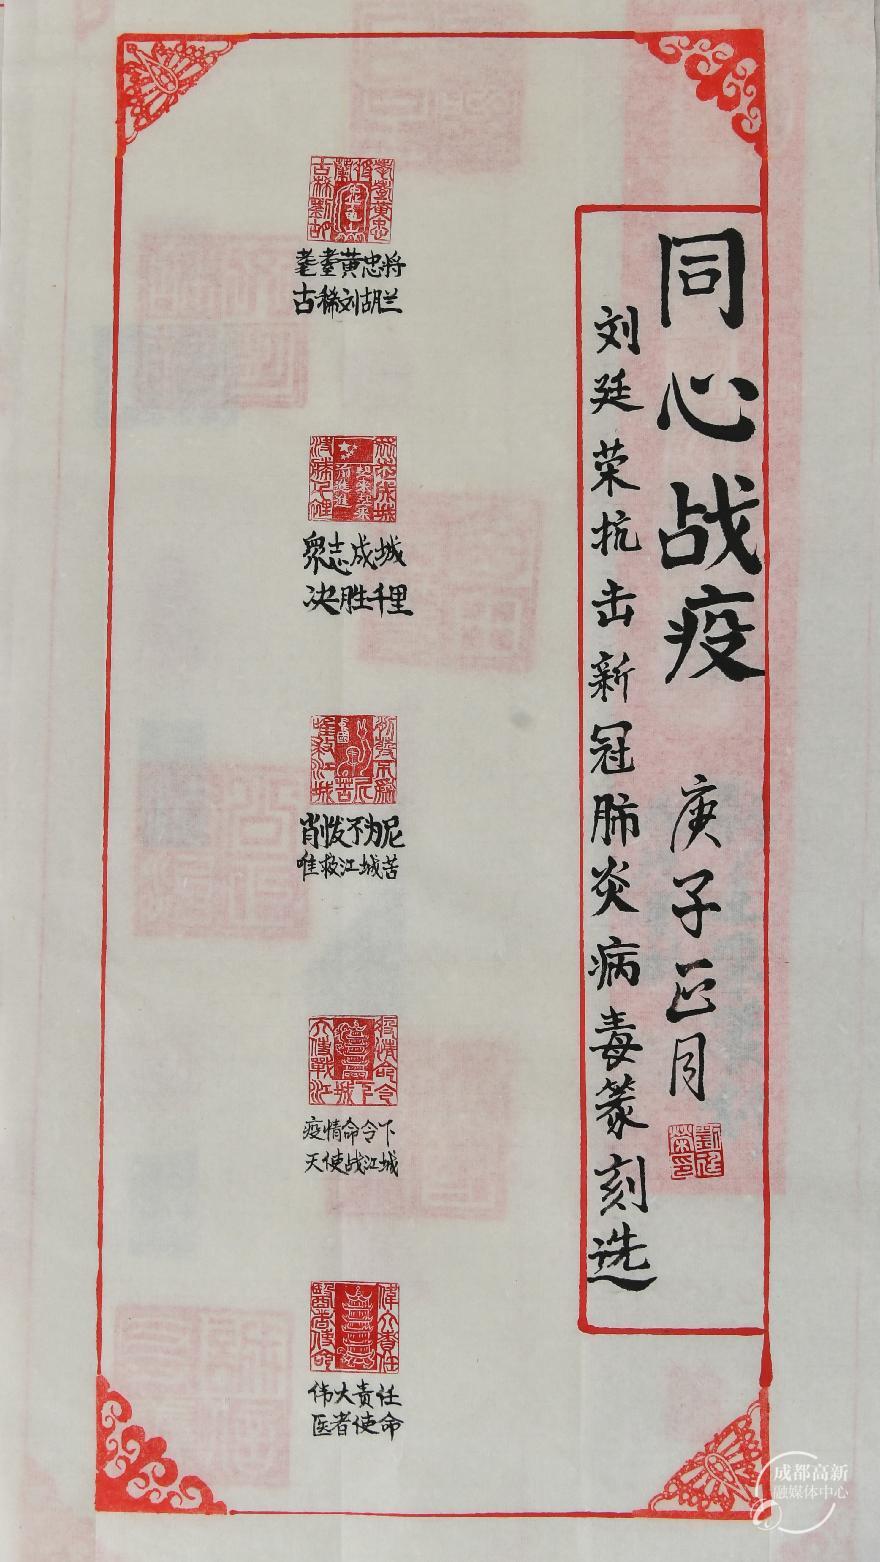 同心战疫 庚子正月
刘廷荣抗击新冠肺炎病毒篆刻选
耄耋黄忠将
古稀刘胡兰
众志成城
决胜千里
削发不为尼
唯救江城苦
疫情命令下
天使战江城
伟大责任
医者使命
成都高新
融媒体中心